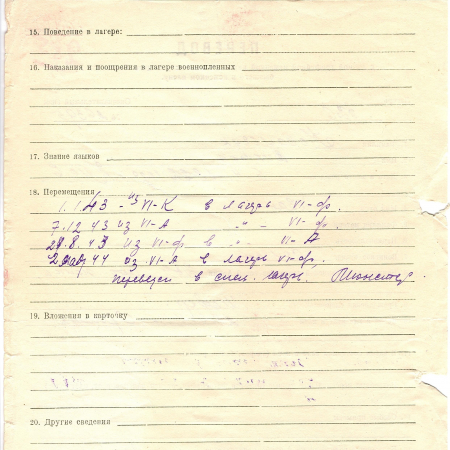 15. Поведение в лагере:
16. Наказания и поощрения в лагере военнопленных
17. Знание языков
18. Перемещения
1.1.43 - из VI-К в лагерь VI-ф.
7.12.43 из VI-А " - VI-ф.
8.43 из VI-ф. в " VI-А
44 из VI-А в лагерь VI-ф,
переведен в лагерь.
19. Вложения в карточку
20. Другие сведения